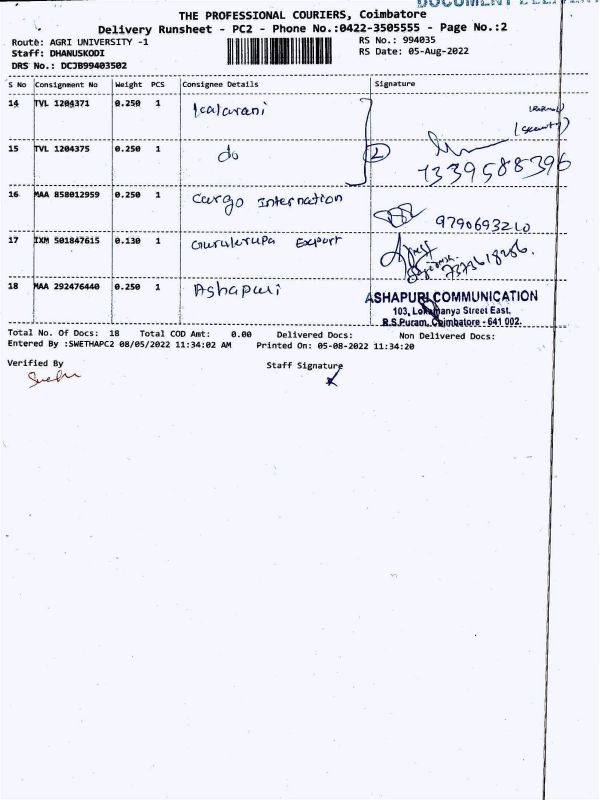 DOCUMENT
THE PROFESSIONAL COURIERS, Coimbatore
Delivery Runsheet - PC2 - Phone No.:0422-3505555 - Page No.:2
Route: AGRI UNIVERSITY -1
RS No.: 994035
Staff: DHANUSKODI
RS Date: 05-Aug-2022
DRS No.: DCJB99403502
S No Consignment No Weight PCS Consignee Details Signature
14 TVL 1204371 0.250 1 Kalarani
(security)
15 TVL 1204375 0.250 1 do 2
7339588396
16 MAA 858012959 0.250 1 Cargo Internation
9790693210
17 IXM 501847615 0.130 1 Gurukrupa Export
18 MAA 292476440 0.250 1 Ashapuri
ASHAPURI COMMUNICATION
103, Lokmanya Street East,
R.S.Puram, Coimbatore - 641 002.
Total No. Of Docs: 18 Total COD Amt: 0.00 Delivered Docs: Non Delivered Docs:
Entered By :SWETHAPC2 08/05/2022 11:34:02 AM Printed On: 05-08-2022 11:34:20
Verified By
Staff Signature